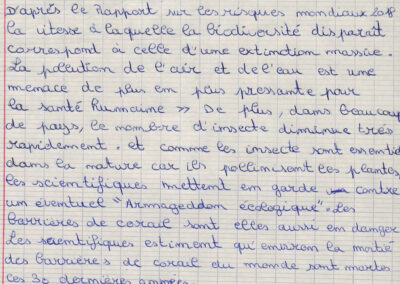 D'après le Rapport sur les risques mondiaux 2018
la vitesse à laquelle la biodiversité disparaît
correspond à celle d'une extinction massive.
La pollution de l'air et de l'eau est une
menace de plus en plus pressante pour
la santé humaine » De plus, dans beaucoup
de pays, le nombre d'insecte diminue très
rapidement. et comme les insecte sont essentiel
dans la nature car ils pollinisent les plantes,
les scientifiques mettent en garde contre
un éventuel "Armageddon écologique". Les
barrières de corail sont elles aussi en danger
Les scientifiques estiment qu'environ la moitié
des barrières de corail du monde sont mortes
ces 30 dernières années